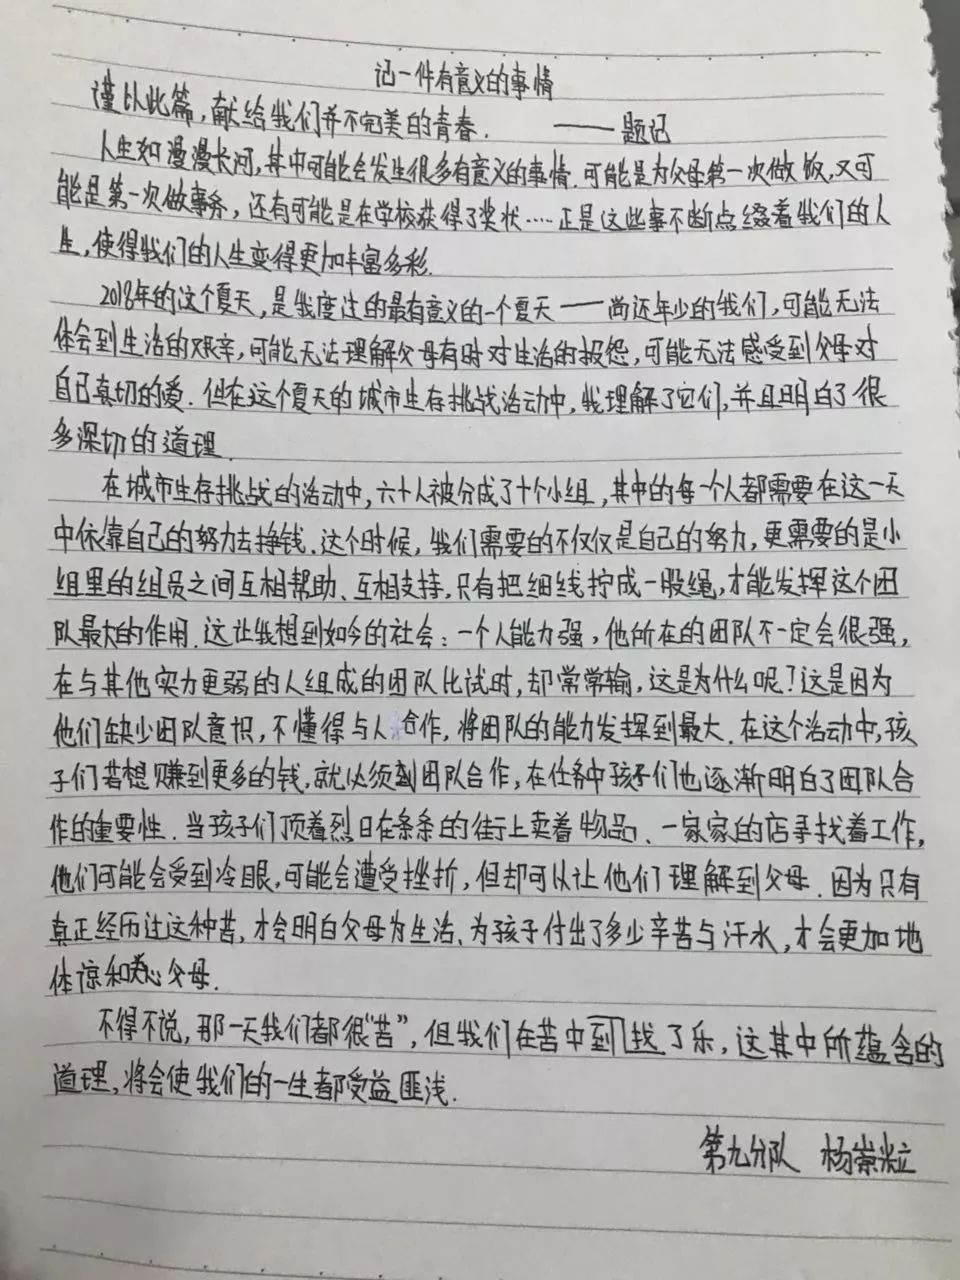 记一件有意义的事情
谨以此篇，献给我们并不完美的青春. ——题记
人生如漫漫长河，其中可能会发生很多有意义的事情.可能是为父母第一次做饭，又可
能是第一次做事务，还有可能是在学校获得了奖状……正是这些事不断点缀着我们的人
生，使得我们的人生变得更加丰富多彩.
2018年的这个夏天，是我度过的最有意义的一个夏天——尚还年少的我们，可能无法
体会到生活的艰辛，可能无法理解父母有时对生活的报怨，可能无法感受到父母对
自己真切的爱.但在这个夏天的城市生存挑战活动中，我理解了它们，并且明白了很
多深切的道理.
在城市生存挑战的活动中，六十人被分成了十个小组，其中的每一个人都需要在这一天
中依靠自己的努力去挣钱.这个时候，我们需要的不仅仅是自己的努力，更需要的是小
组里的组员之间互相帮助、互相支持，只有把细线拧成一股绳，才能发挥这个团
队最大的作用.这让我想到如今的社会：一个人能力强，他所在的团队不一定会很强，
在与其他实力更弱的人组成的团队比试时，却常常输，这是为什么呢？这是因为
他们缺少团队意识，不懂得与人合作，将团队的能力发挥到最大.在这个活动中，孩
子们若想赚到更多的钱，就必须到团队合作，在任务中孩子们也逐渐明白了团队合
作的重要性.当孩子们顶着烈日在条条的街上卖着物品、一家家的店寻找着工作，
他们可能会受到冷眼，可能会遭受挫折，但却可以让他们理解到父母.因为只有
真正经历过这种苦，才会明白父母为生活、为孩子付出了多少辛苦与汗水，才会更加地
体谅和关心父母.
不得不说，那一天我们都很“苦”，但我们在苦中到找了乐，这其中所蕴含的
道理，将会使我们的一生都受益匪浅.
第九分队 杨崇